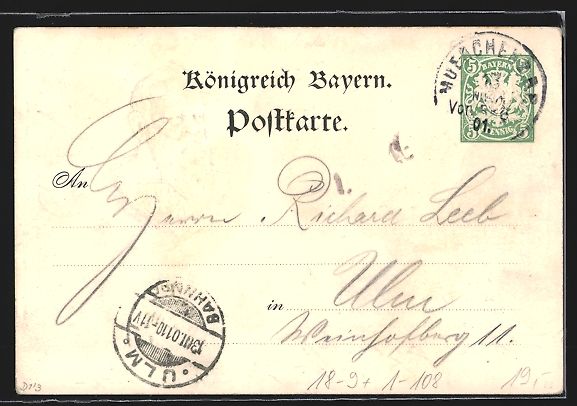 Königreich Bayern.
Postkarte.
5 BAYERN 5
PFENNIG
MUENCHEN
Vor
01.
An
Herrn Richard Leeb
in Ulm
Weinhofberg 11.
BAHNHOF
13.III.01 10-11V
ULM.
18-9+ 1-108
19,-
D113